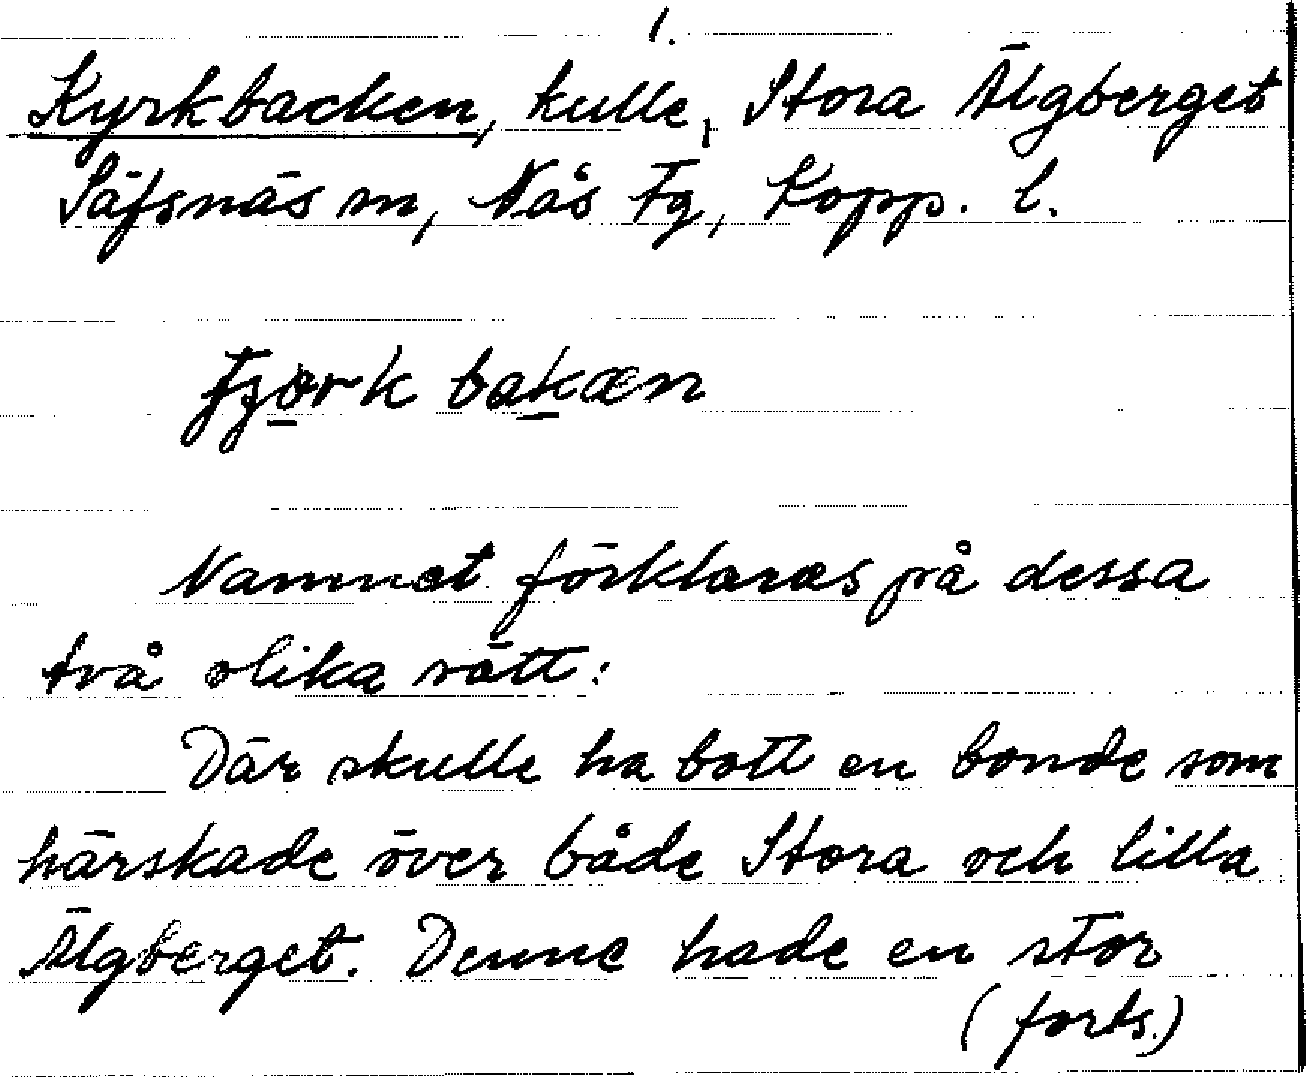 1.
Kyrkbacken, kulle, Stora Älgberget
Säfsnäs sn, Nås Fg, Kopp. l.
bakæn
Namnet förklaras på dessa
två olika sätt:
Där skulle ha bott en bonde som
härskade över både Stora och lilla
Älgberget. Denne hade en stor
(forts.)